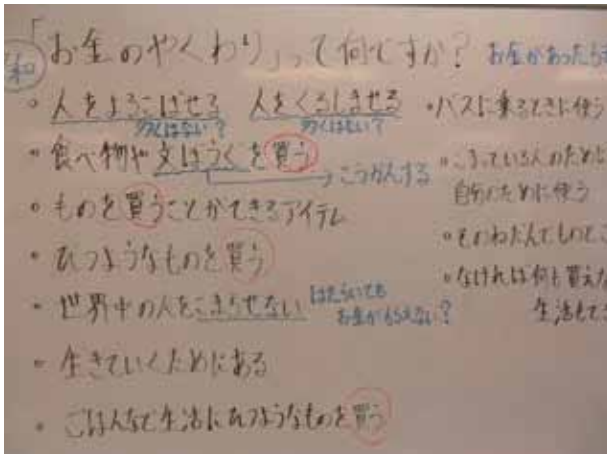 「お金のやくわり」って何ですか？ お金があったら
和
・人をよろこばせる 人をくるしませる
多くはない？ 多くはない？
・食べ物や文ぼうぐを買う
→こうかんする
・ものを買うことができるアイテム
・ひつようなものを買う
・世界中の人をこまらせない
はたらいても
お金がもらえない？
・生きていくためにある
・ごはんなど生活にひつようなものを買う
・バスに乗るときに使う
・こまっている人のために
自分のために使う
・そのねだんでものと
・なければ何も買えな
生活もで